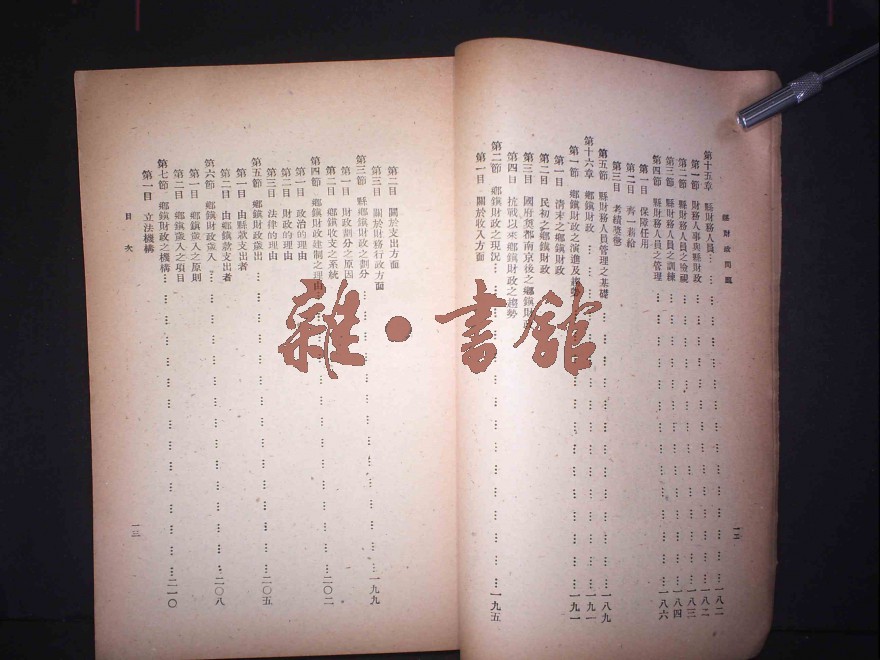 縣財政問題
第十五章 縣財務人員… … 一八二
第一節 財務人事與縣財政… … 一八二
第二節 縣財務人員之檢視… … 一八三
第三節 縣財務人員之訓練… … 一八四
第四節 縣財務人員之管理… … 一八六
第一目 保障任用
第二目 齊一薪給
第三目 考績獎懲
第五節 縣財務人員管理之基礎… … 一八九
第十六章 鄉鎮財政… … 一九一
第一節 鄉鎮財政之演進及趨勢… … 一九一
第一目 清末之鄉鎮財政
第二目 民初之鄉鎮財政
第三目 國府奠都南京後之鄉鎮財政
第四目 抗戰以來鄉鎮財政之趨勢
第二節 鄉鎮財政之現況… … 一九五
第一目 關於收入方面
一二
第二目 關於支出方面
第三目 關於財務行政方面
第三節 縣鄉鎮財政之劃分… … 一九九
第一目 財政劃分之原因
第二目 鄉鎮收支之系統
第四節 鄉鎮財政建制之理由… … 二〇二
第一目 政治的理由
第二目 財政的理由
第三目 法律的理由
第五節 鄉鎮財政歲出… … 二〇五
第一目 由縣款支出者
第二目 由鄉鎮款支出者
第六節 鄉鎮財政歲入… … 二〇八
第一目 鄉鎮歲入之原則
第二目 鄉鎮歲入之項目
第七節 鄉鎮財政之機構… … 二一〇
第一目 立法機構
目次
一三
雜·書館